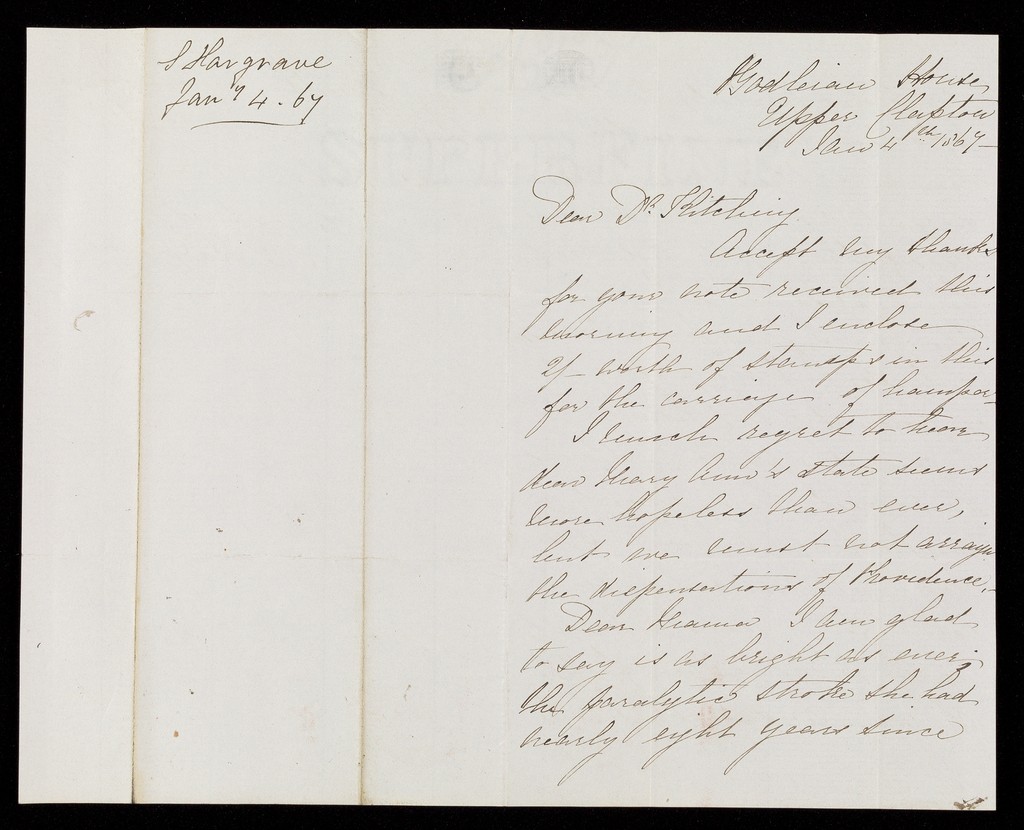 S Hargrave
Jany 4. 67
Bodleian House
Upper Clapton
Jan 4th 1867
Dear Dr. Kitching
Accept my thanks
for your note received this
morning and I enclose
2/- worth of stamps in this
for the carriage of hamper
I much regret to hear
dear Mary Ann's state seems
more hopeless than ever,
but we must not arraign
the dispensations of Providence.
Dear Mama I am glad
to say is as bright as ever.
the paralytic stroke she had
nearly eight years since